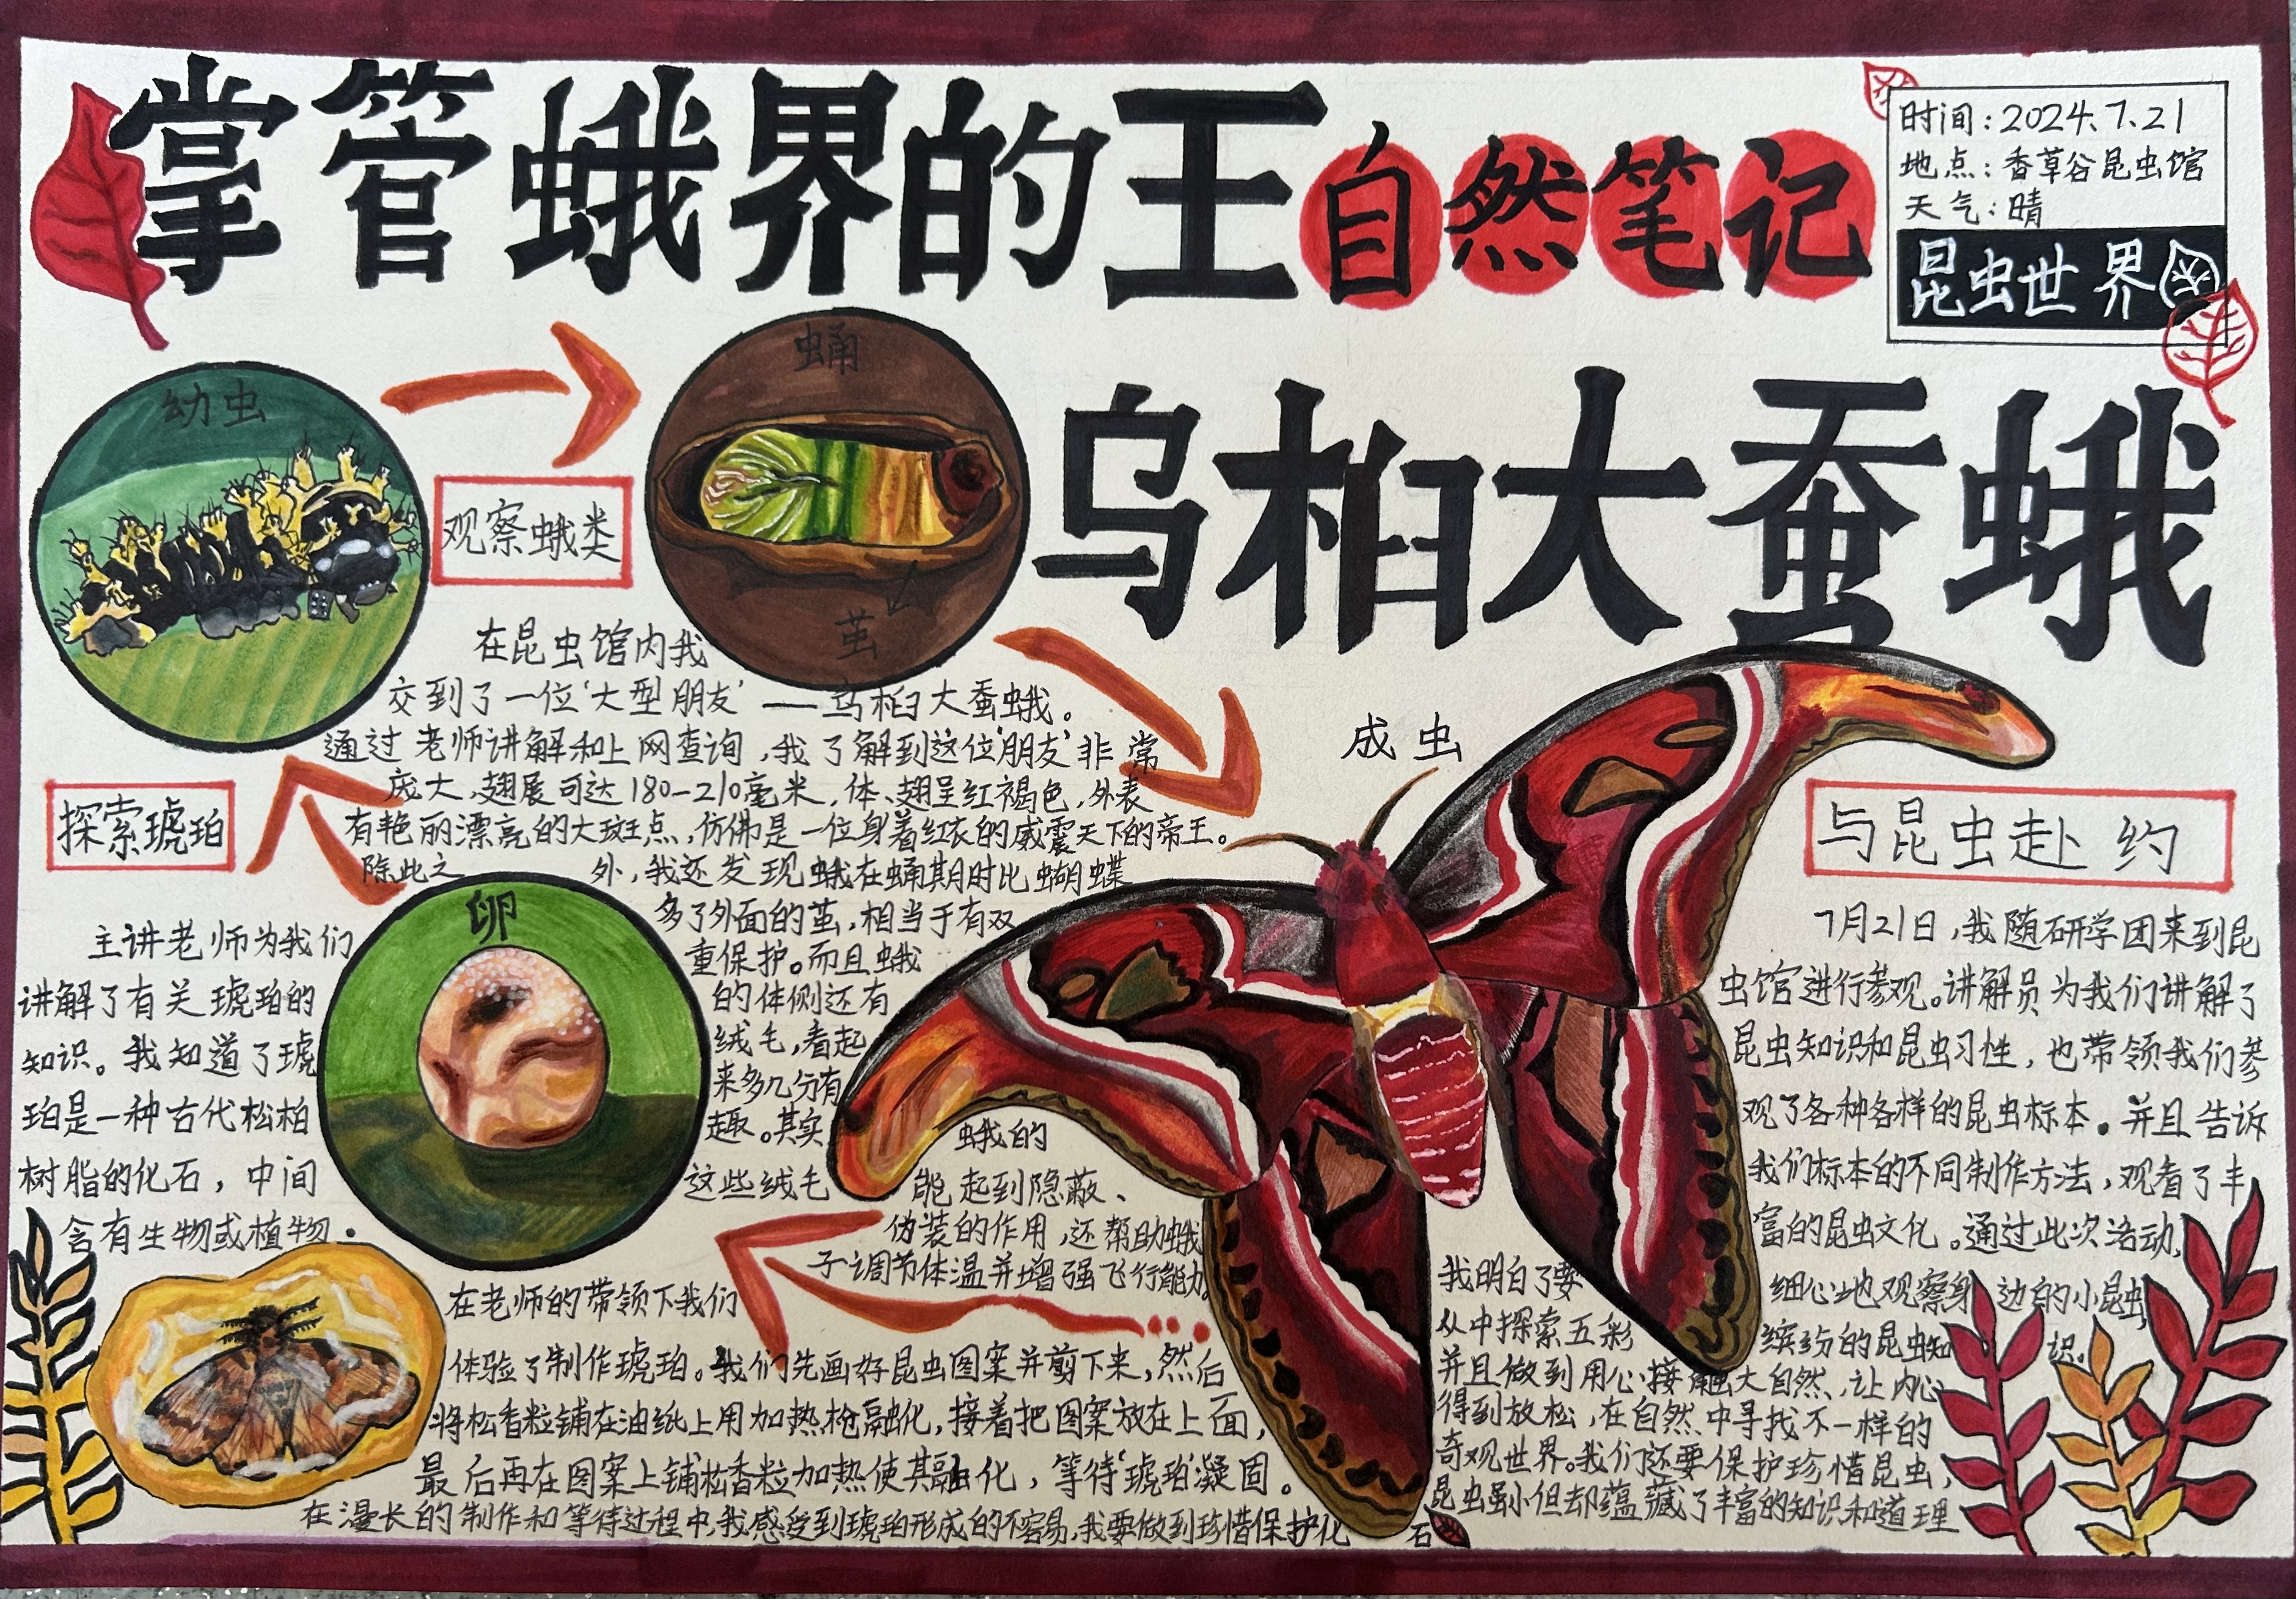 掌管蛾界的王自然笔记
时间：2024.7.21
地点：香草谷昆虫馆
天气：晴
昆虫世界
乌桕大蚕蛾
幼虫
蛹
茧
成虫
卵
观察蛾类
在昆虫馆内我
交到了一位‘大型朋友’——乌桕大蚕蛾。
通过老师讲解和上网查询，我了解到这位‘朋友’非常
庞大，翅展可达180-210毫米，体、翅呈红褐色，外表
有艳丽漂亮的大斑点，仿佛是一位身着红衣的威震天下的帝王。
除此之外，我还发现蛾在蛹期时比蝴蝶
多了外面的茧，相当于有双
重保护。而且蛾
的体侧还有
绒毛，看起
来多几分有
趣。其实
蛾的
这些绒毛能起到隐蔽、
伪装的作用，还帮助蛾
子调节体温并增强飞行能力。
探索琥珀
主讲老师为我们
讲解了有关琥珀的
知识。我知道了琥
珀是一种古代松柏
树脂的化石，中间
含有生物或植物。
在老师的带领下我们
体验了制作琥珀。我们先画好昆虫图案并剪下来，然后
将松香粒铺在油纸上用加热枪融化，接着把图案放在上面，
最后再在图案上铺松香粒加热使其融化，等待‘琥珀’凝固。
在漫长的制作和等待过程中，我感受到琥珀形成的不容易，我要做到珍惜保护化石
与昆虫赴约
7月21日，我随研学团来到昆
虫馆进行参观。讲解员为我们讲解了
昆虫知识和昆虫习性，也带领我们参
观了各种各样的昆虫标本。并且告诉
我们标本的不同制作方法，观看了丰
富的昆虫文化。通过此次活动，
我明白了要细心地观察身边的小昆虫，
从中探索五彩缤纷的昆虫知识。
并且做到用心接触大自然，让内心
得到放松，在自然中寻找不一样的
奇观世界。我们还要保护珍惜昆虫，
昆虫虽小但却蕴藏了丰富的知识和道理